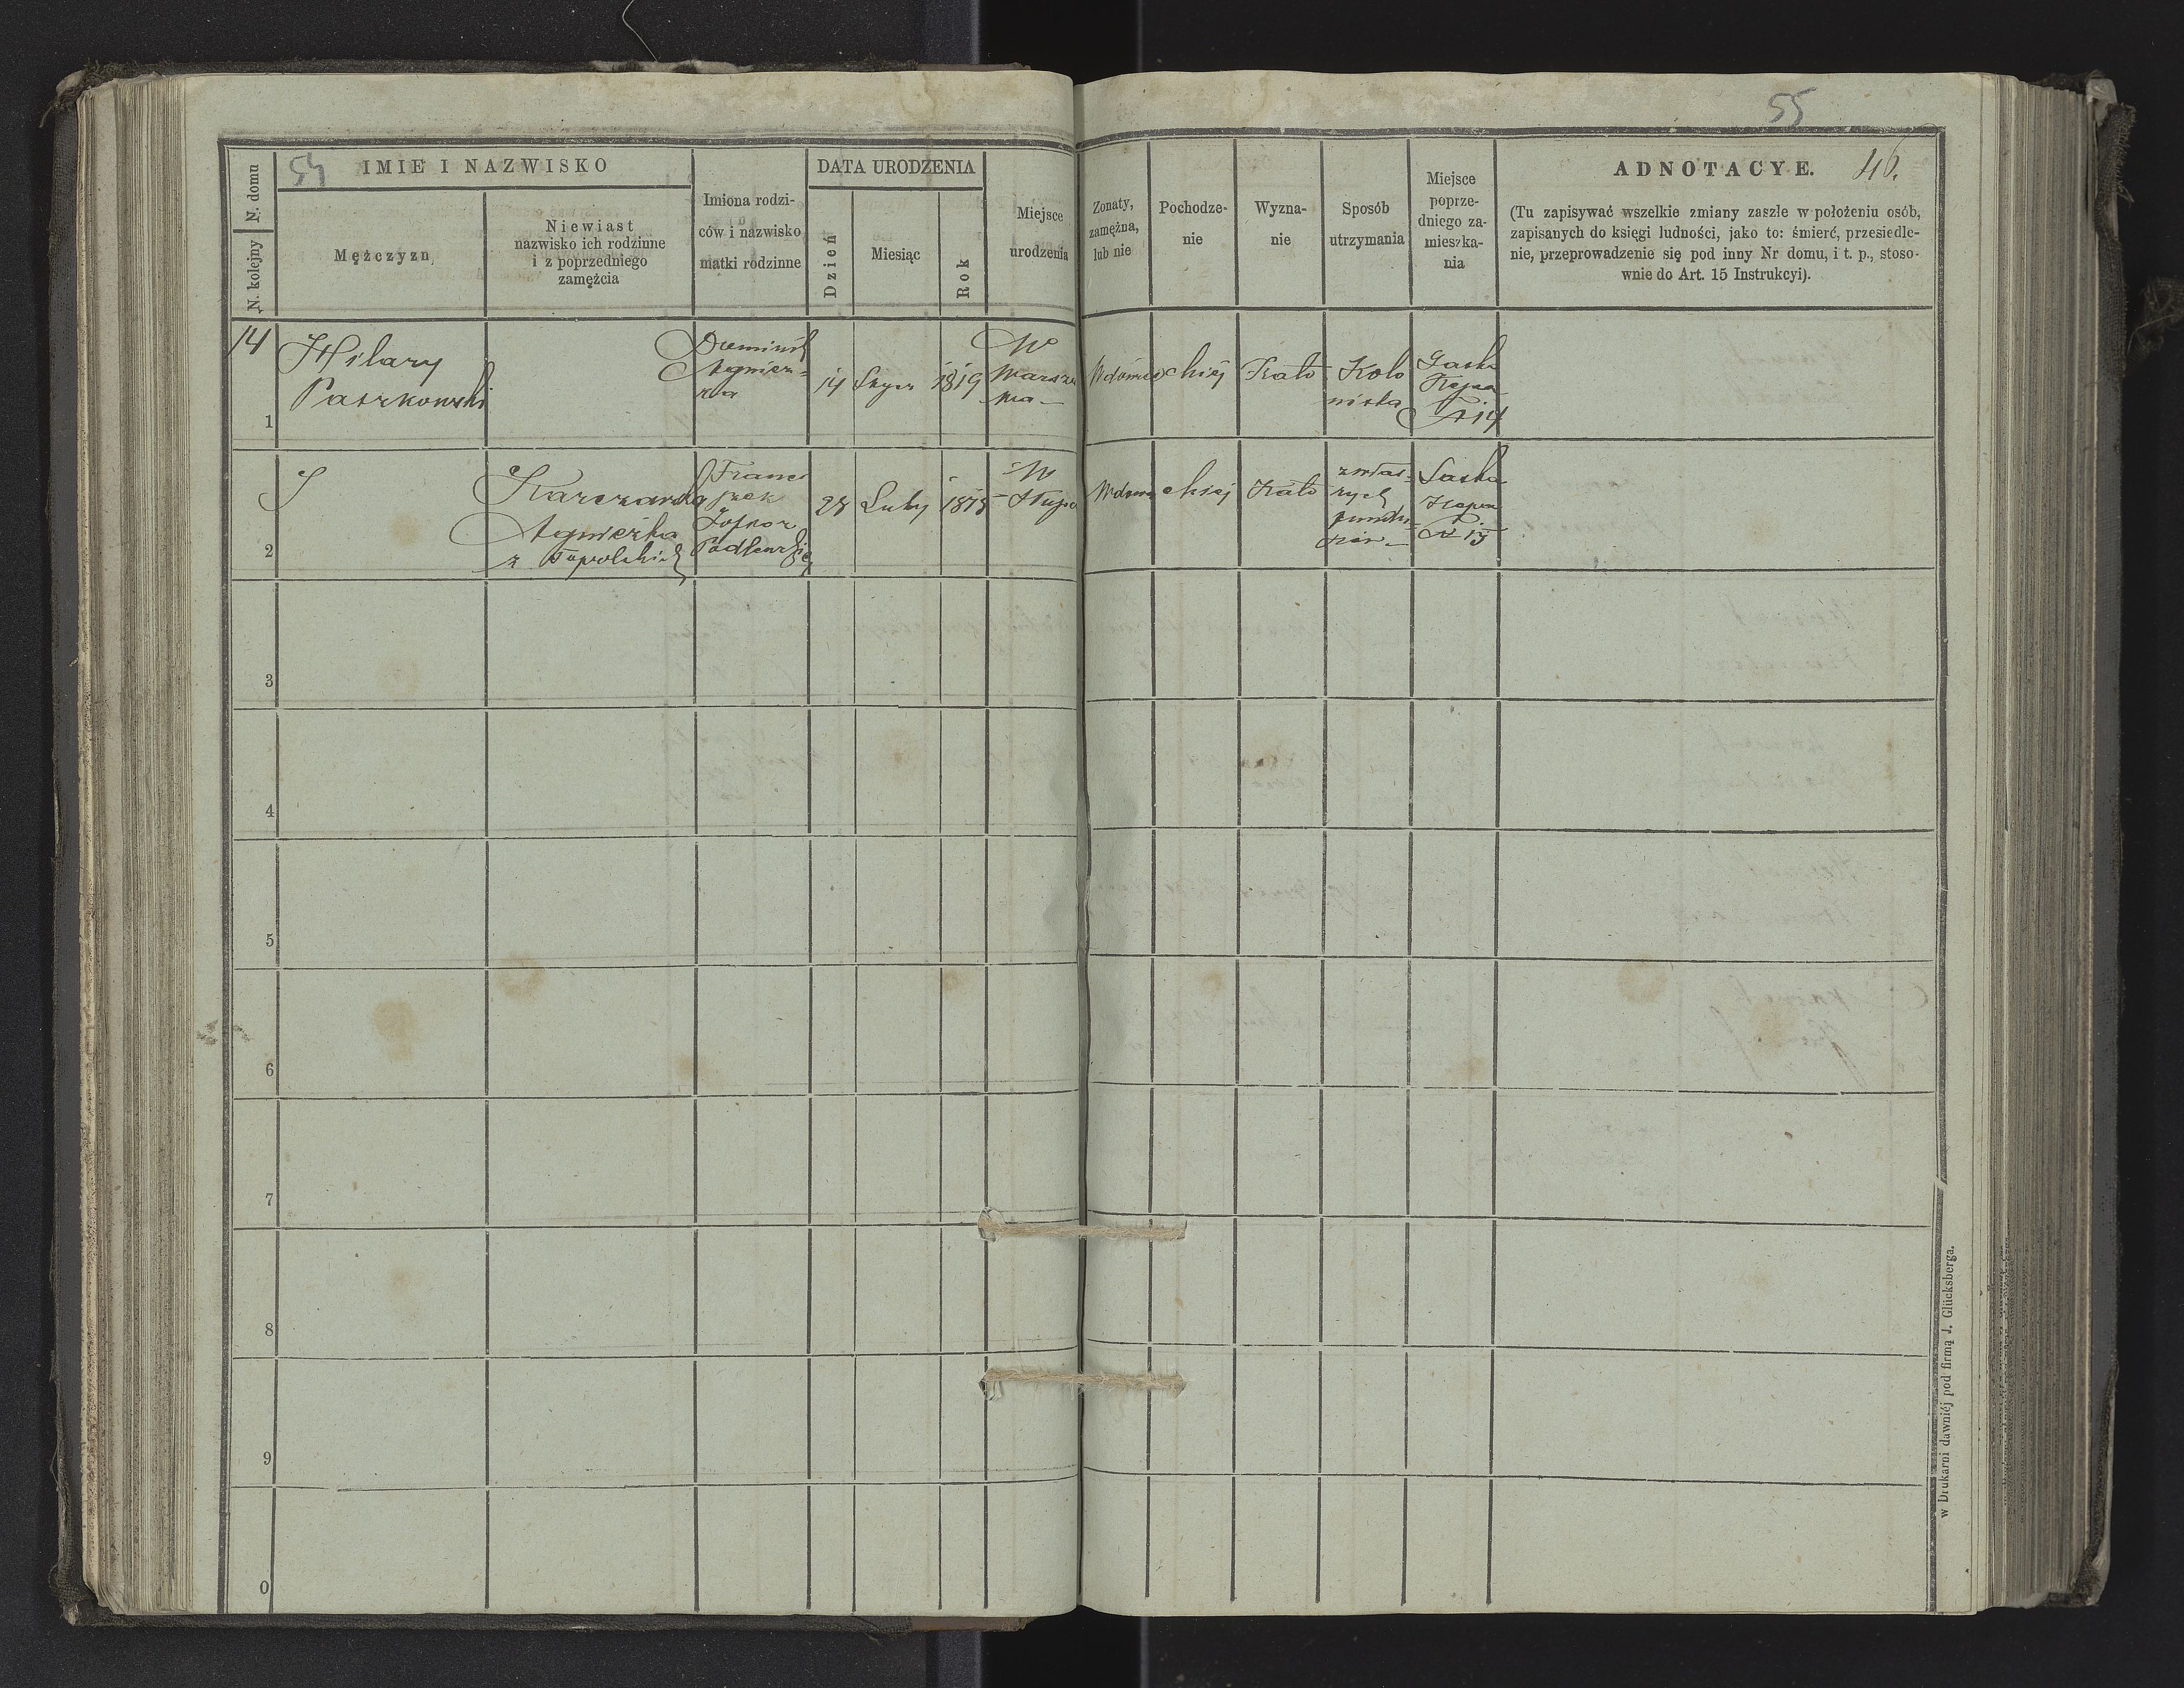 55
54
46.
N. kolejny N. domu
IMIE I NAZWISKO
Mężczyzn
Niewiast
nazwisko ich rodzinne
i z poprzedniego
zamęźcia
Imiona rodzi-
ców i nazwisko
matki rodzinne
DATA URODZENIA
Dzień
Miesiąc
Rok
Miejsce
urodzenia
Żonaty,
zamężna,
lub nie
Pochodze-
nie
Wyzna-
nie
Sposób
utrzymania
Miejsce
poprze-
dniego za-
mieszka-
nia
ADNOTACYE.
(Tu zapisywać wszelkie zmiany zaszłe w położeniu osób,
zapisanych do księgi ludności, jako to: śmierć, przesiedle-
nie, przeprowadzenie się pod inny Nr domu, i t. p., stoso-
wnie do Art. 15 Instrukcyi).
14
1
Hilary
Paszkowski
Agniesz-
ka
14
1819
W
Warsza
wa
chiej
Kato
Kolo
nista
Saska
Kępa
N 14
2
Karczewska
Agnieszka
Franci
szek
Podlewskiej
28
Luty
W
Słupca
chiej
Kato
z włas-
nych
fundu-
Saska
Kępa
3
4
5
6
7
8
9
0
w Drukarni dawniéj pod firmą J. Glücksberga.